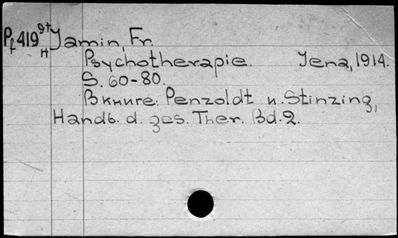 Pf 419 9t Jamin, Fr.
H
Psychotherapie. Jena, 1914.
S. 60-80.
В книге: Penzoldt u. Stinzing,
Handb. d. ges. Ther. Bd. 2.